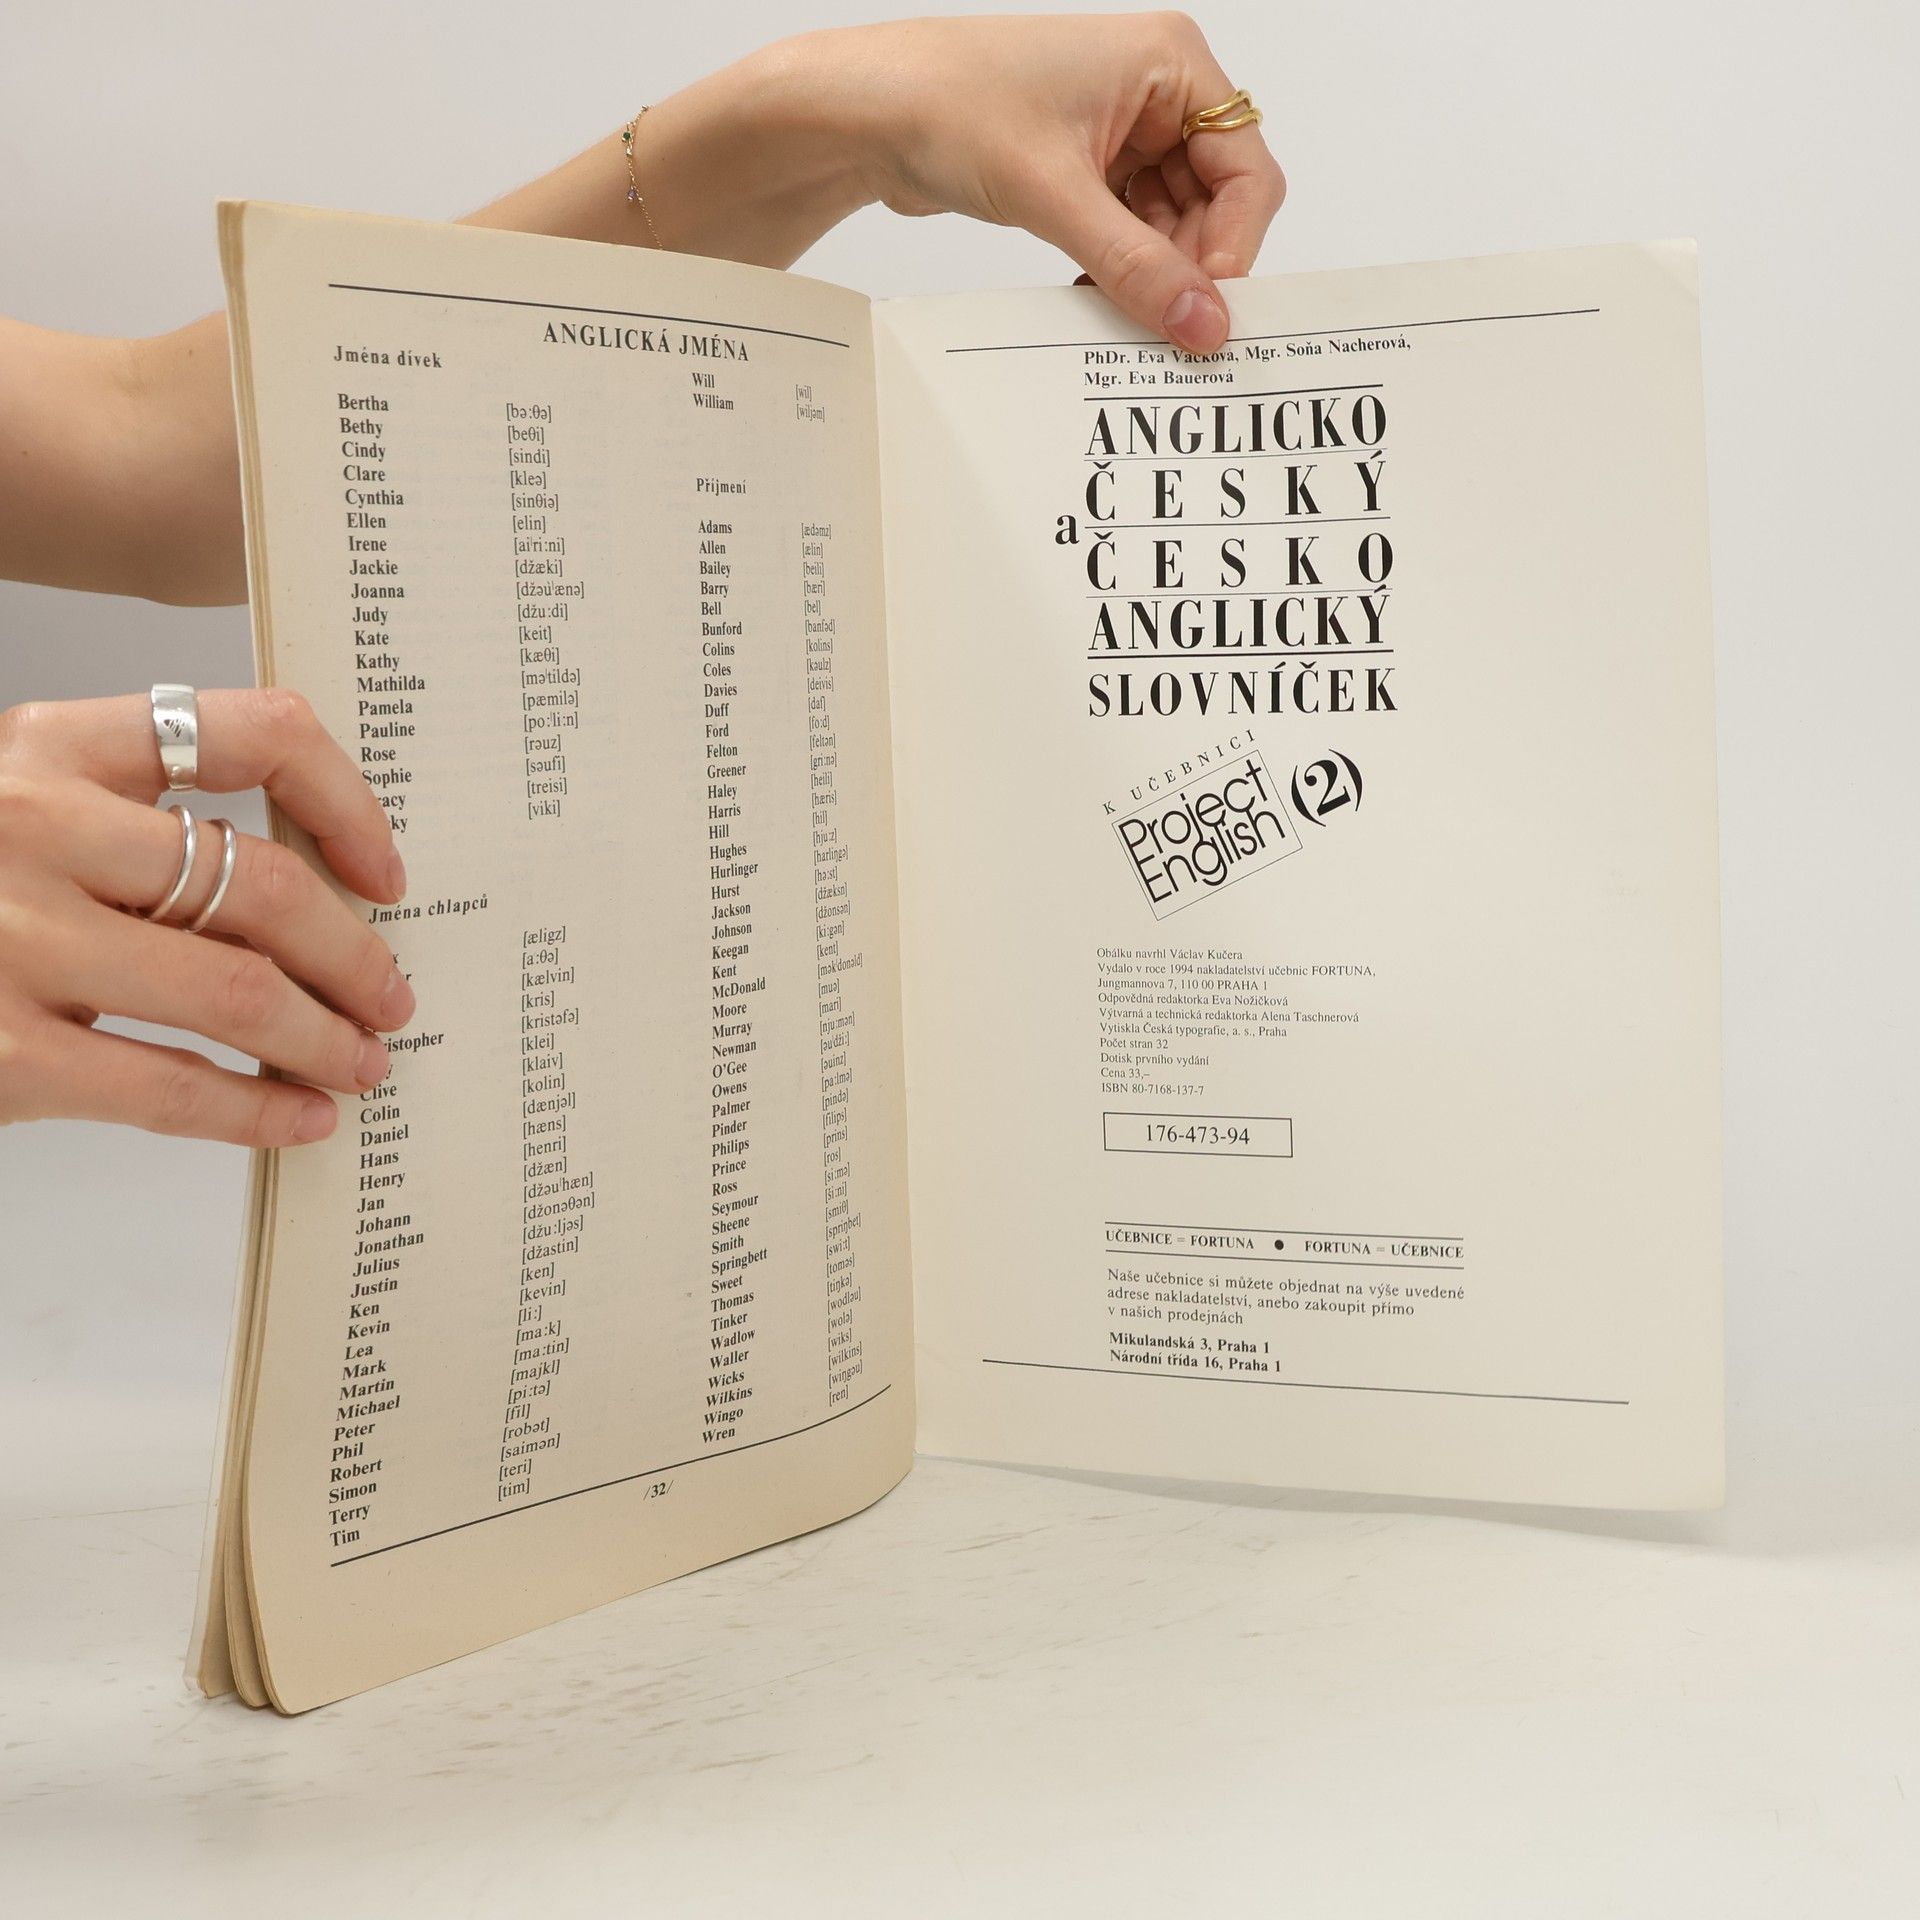 ANGLICKÁ JMÉNA
Jména dívek
Bertha [bə:θə]
Bethy [beθi]
Cindy [sindi]
Clare [kleə]
Cynthia [sinθiə]
Ellen [elin]
Irene [ai'ri:ni]
Jackie [džæki]
Joanna [džəu'ænə]
Judy [džu:di]
Kate [keit]
Kathy [kæθi]
Mathilda [mə'tildə]
Pamela [pæmilə]
Pauline [po:'li:n]
Rose [rəuz]
Sophie [səufi]
racy [treisi]
ky [viki]
Jména chlapců
x [æligz]
r [a:θə]
[kælvin]
[kris]
ristopher [kristəfə]
[klei]
Clive [klaiv]
Colin [kolin]
Daniel [dænjəl]
Hans [hæns]
Henry [henri]
Jan [džæn]
Johann [džəu'hæn]
Jonathan [džonəθən]
Julius [džu:ljəs]
Justin [džastin]
Ken [ken]
Kevin [kevin]
Lea [li:]
Mark [ma:k]
Martin [ma:tin]
Michael [majkl]
Peter [pi:tə]
Phil [fil]
Robert [robət]
Simon [saimən]
Terry [teri]
Tim [tim]
Will [wil]
William [wiljəm]
Příjmení
Adams [ædəmz]
Allen [ælin]
Bailey [beili]
Barry [bæri]
Bell [bel]
Bunford [banfəd]
Colins [kolins]
Coles [kəulz]
Davies [deivis]
Duff [daf]
Ford [fo:d]
Felton [feltən]
Greener [gri:nə]
Haley [heili]
Harris [hæris]
Hill [hil]
Hughes [hju:z]
Hurlinger [harliŋgə]
Hurst [hə:st]
Jackson [džæksn]
Johnson [džonsən]
Keegan [ki:gən]
Kent [kent]
McDonald [mək'donəld]
Moore [muə]
Murray [mari]
Newman [nju:mən]
O'Gee [əu'dži:]
Owens [əuinz]
Palmer [pa:lmə]
Pinder [pində]
Philips [filips]
Prince [prins]
Ross [ros]
Seymour [si:mə]
Sheene [ši:ni]
Smith [smiθ]
Springbett [spriŋbet]
Sweet [swi:t]
Thomas [toməs]
Tinker [tiŋkə]
Wadlow [wodləu]
Waller [wolə]
Wicks [wiks]
Wilkins [wilkins]
Wingo [wiŋgəu]
Wren [ren]
/32/
PhDr. Eva Vacková, Mgr. Soňa Nacherová,
Mgr. Eva Bauerová
ANGLICKO
ČESKÝ
a
ČESKO
ANGLICKÝ
SLOVNÍČEK
K UČEBNICI
Project
English
(2)
Obálku navrhl Václav Kučera
Vydalo v roce 1994 nakladatelství učebnic FORTUNA,
Jungmannova 7, 110 00 PRAHA 1
Odpovědná redaktorka Eva Nožičková
Výtvarná a technická redaktorka Alena Taschnerová
Vytiskla Česká typografie, a. s., Praha
Počet stran 32
Dotisk prvního vydání
Cena 33,–
ISBN 80-7168-137-7
176-473-94
UČEBNICE = FORTUNA ● FORTUNA = UČEBNICE
Naše učebnice si můžete objednat na výše uvedené
adrese nakladatelství, anebo zakoupit přímo
v našich prodejnách
Mikulandská 3, Praha 1
Národní třída 16, Praha 1